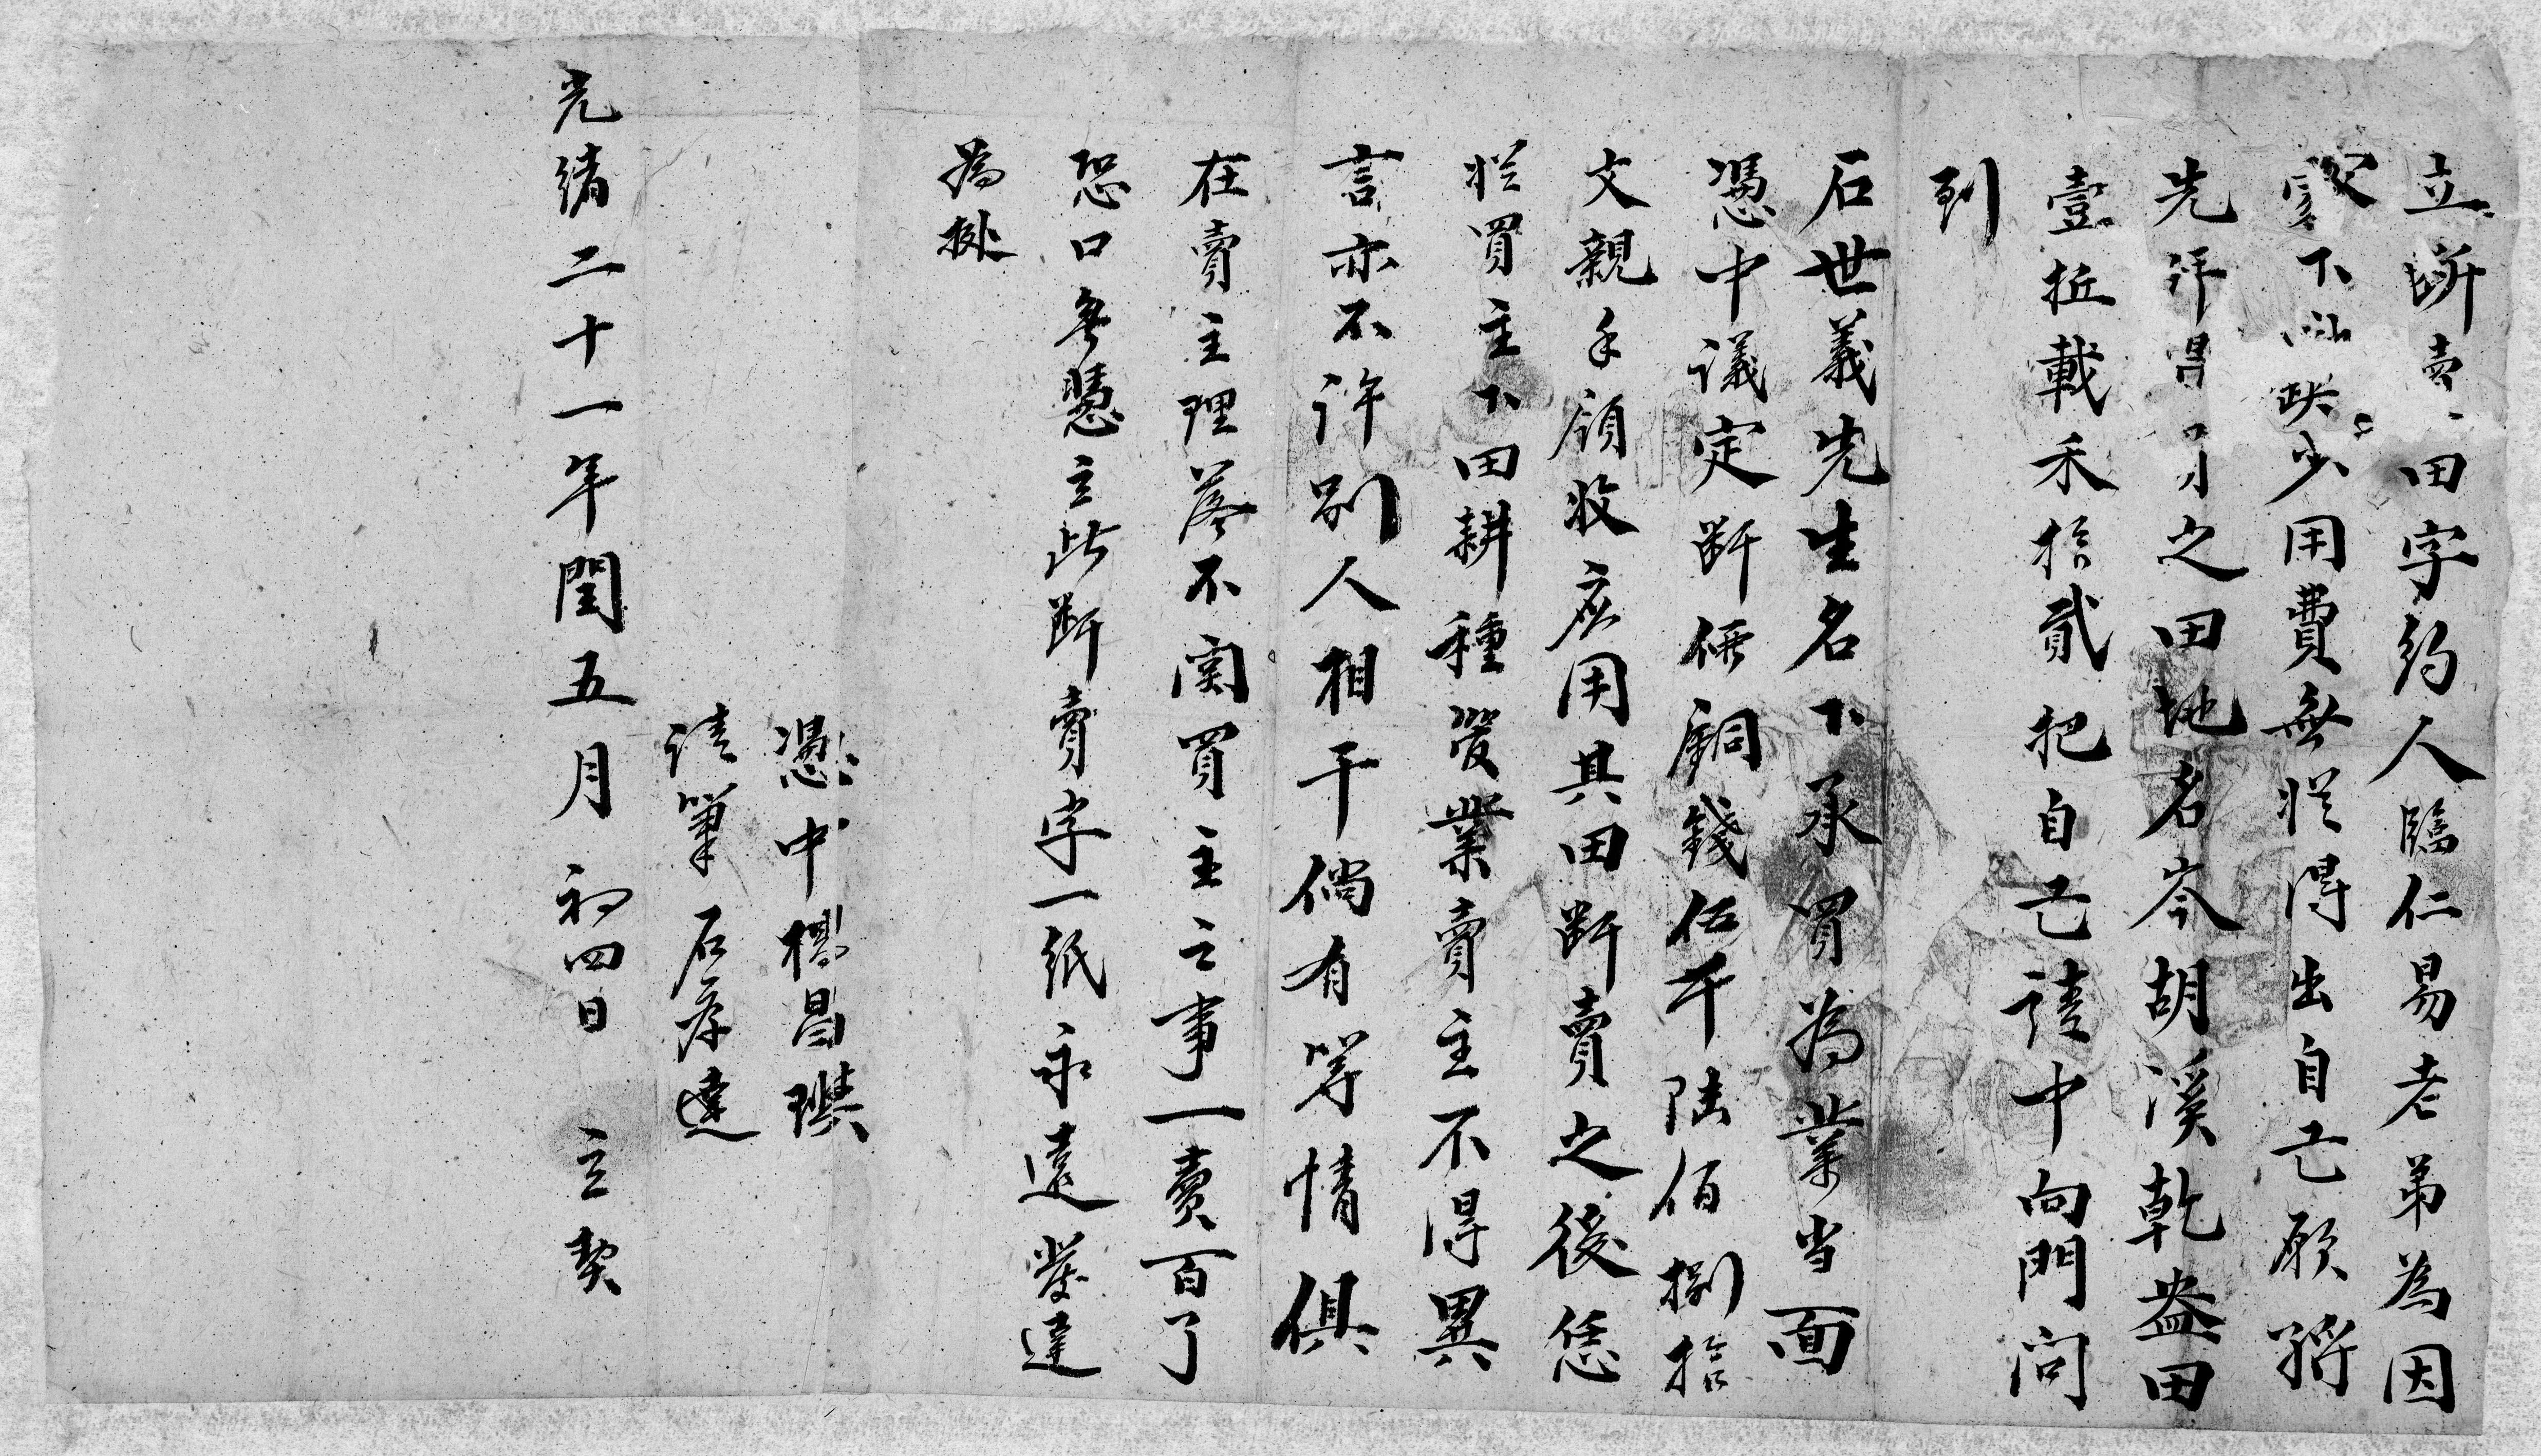 立断卖田字约人臨仁易老弟為因
家下缺少用費無從得出自己願將
先年昌之田地名岑胡溪乾盎田
壹坵載禾拾貳把自己請中向門问
到
石世義先生名下承買為業当面
憑中議定断價銅錢伍千陆佰捌拾
文親手領收应用其田断賣之後恁
從買主下田耕種管業賣主不得異
言亦不許别人相干倘有等情俱
在賣主理落不関買主之事一賣百了
恐口無憑立此断賣字一紙永遠發達
為據
憑中楊昌璵
請筆石彥達
光緒二十一年閏五月初四日 立契